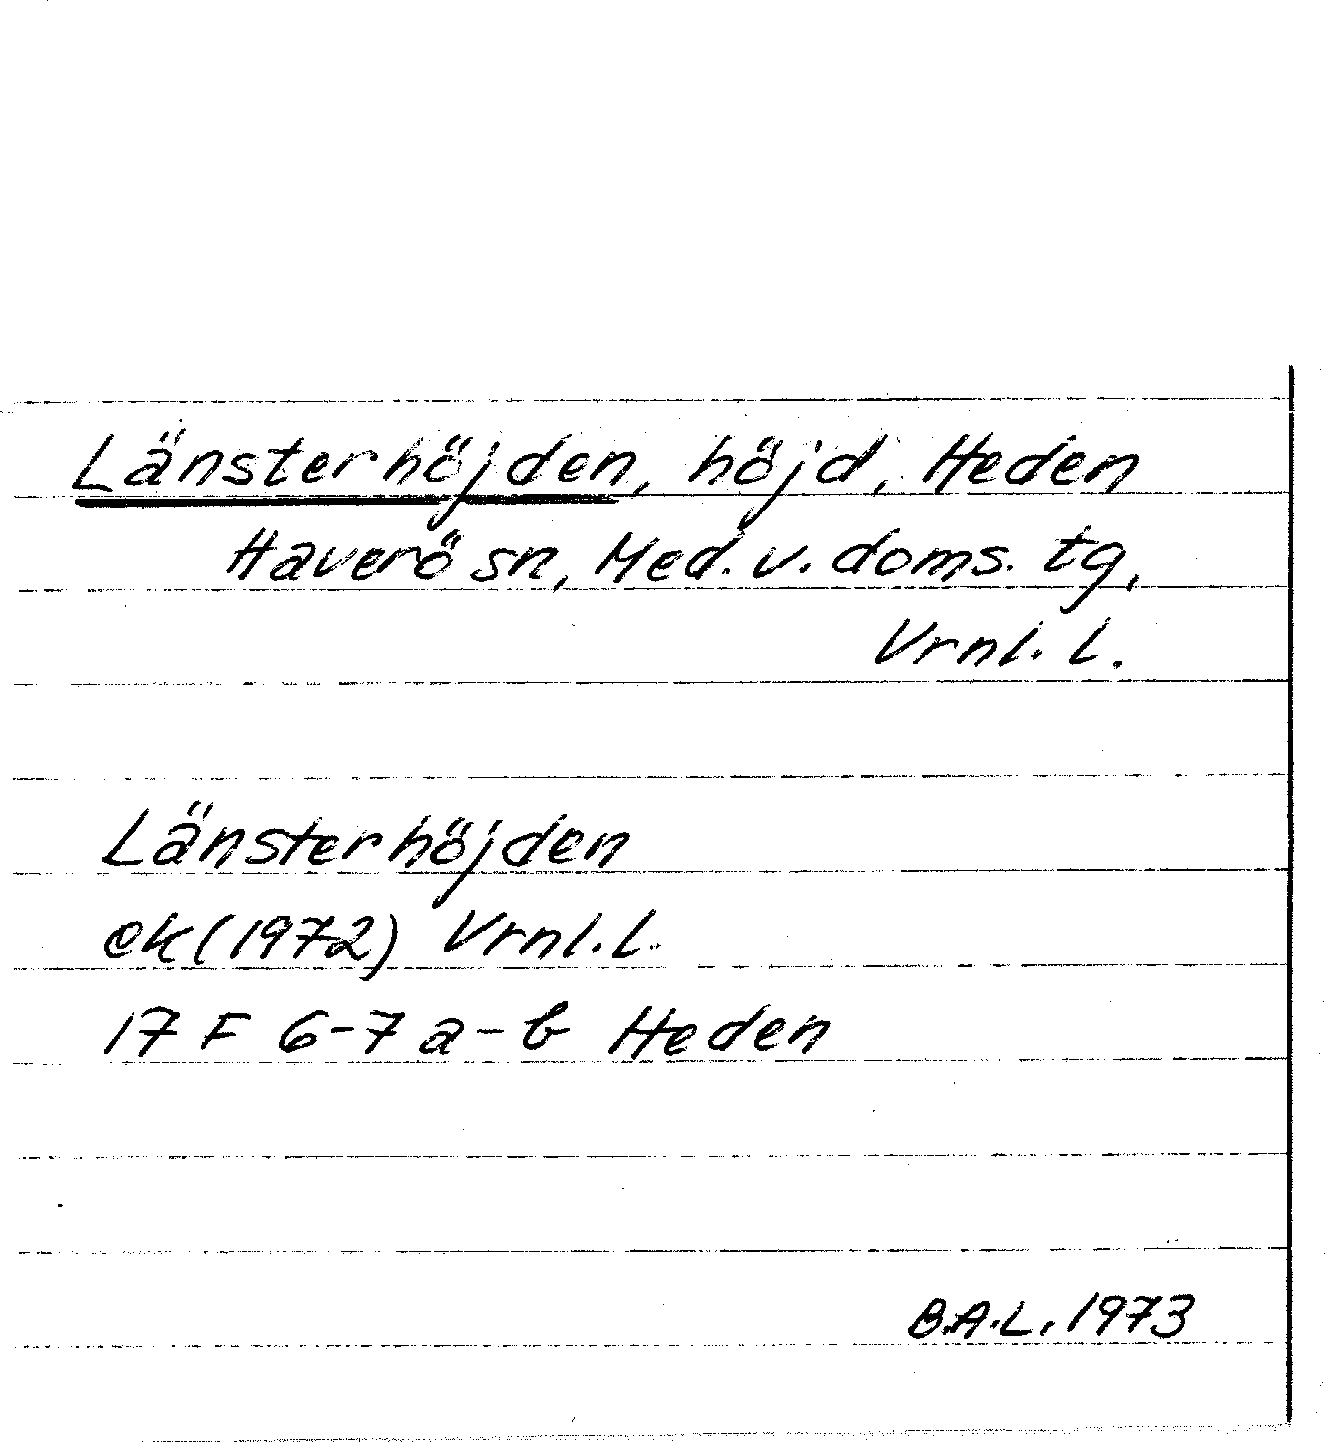 Länsterhöjden, höjd, Heden
Haverö sn, Med. v. doms. tg,
Vrnl. l.
Länsterhöjden
ek (1972) Vrnl. l.
17 F 6-7 a-b Heden
B.A.L. 1973